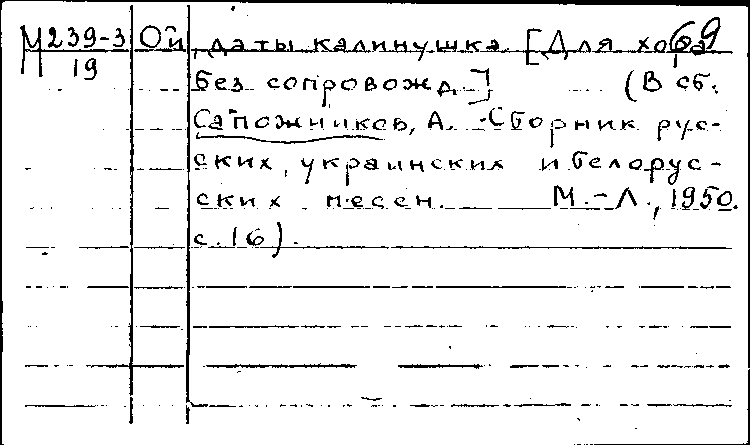 М 239-3 Ой, да ты калинушка. [Для хора 69
19 без сопровожд.] (В сб.
Сапожников, А. Сборник рус-
ских, украинских и белорус-
ских песен. М.-Л., 1950.
с. 16).